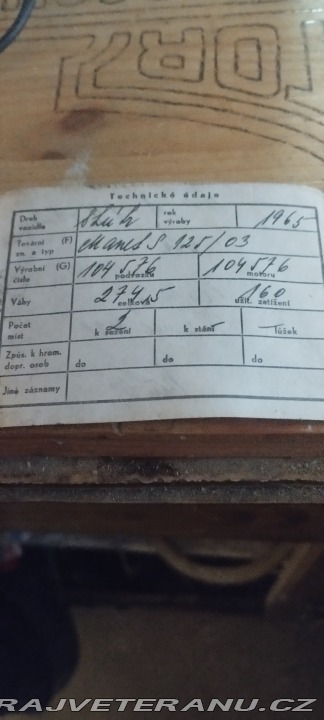 Technické údaje
Druh vozidla skútr rok výroby 1965
Tovární (F) zn. a typ Manet S 125/03
Výrobní (G) číslo 104576 podvozku 104576 motoru
Váhy 274,5 celková 160 užit. zatížení
Počet míst 2 k sezení k stání – lůžek
Způs. k hrom. dopr. osob do do do
Jiné záznamy
RAJVETERANU.CZ